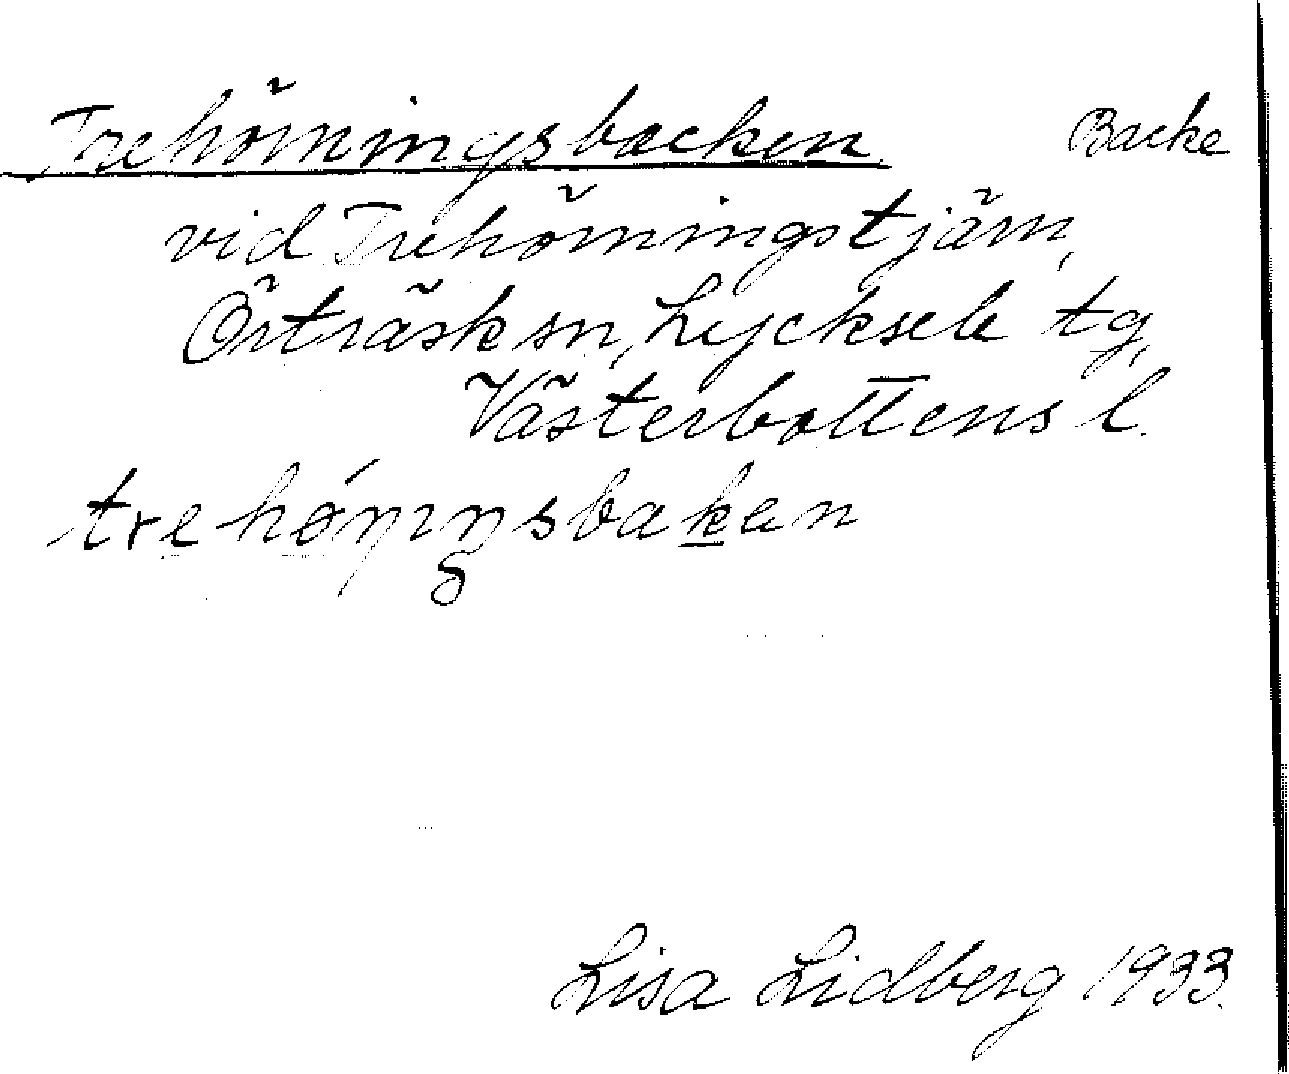 Trehörningsbacken Backe
vid Trehörningstjärn,
Örträsk sn, Lycksele tg,
Västerbottens l.
trehө́ṇıŋsbaḵen
Lisa Lidberg 1933.